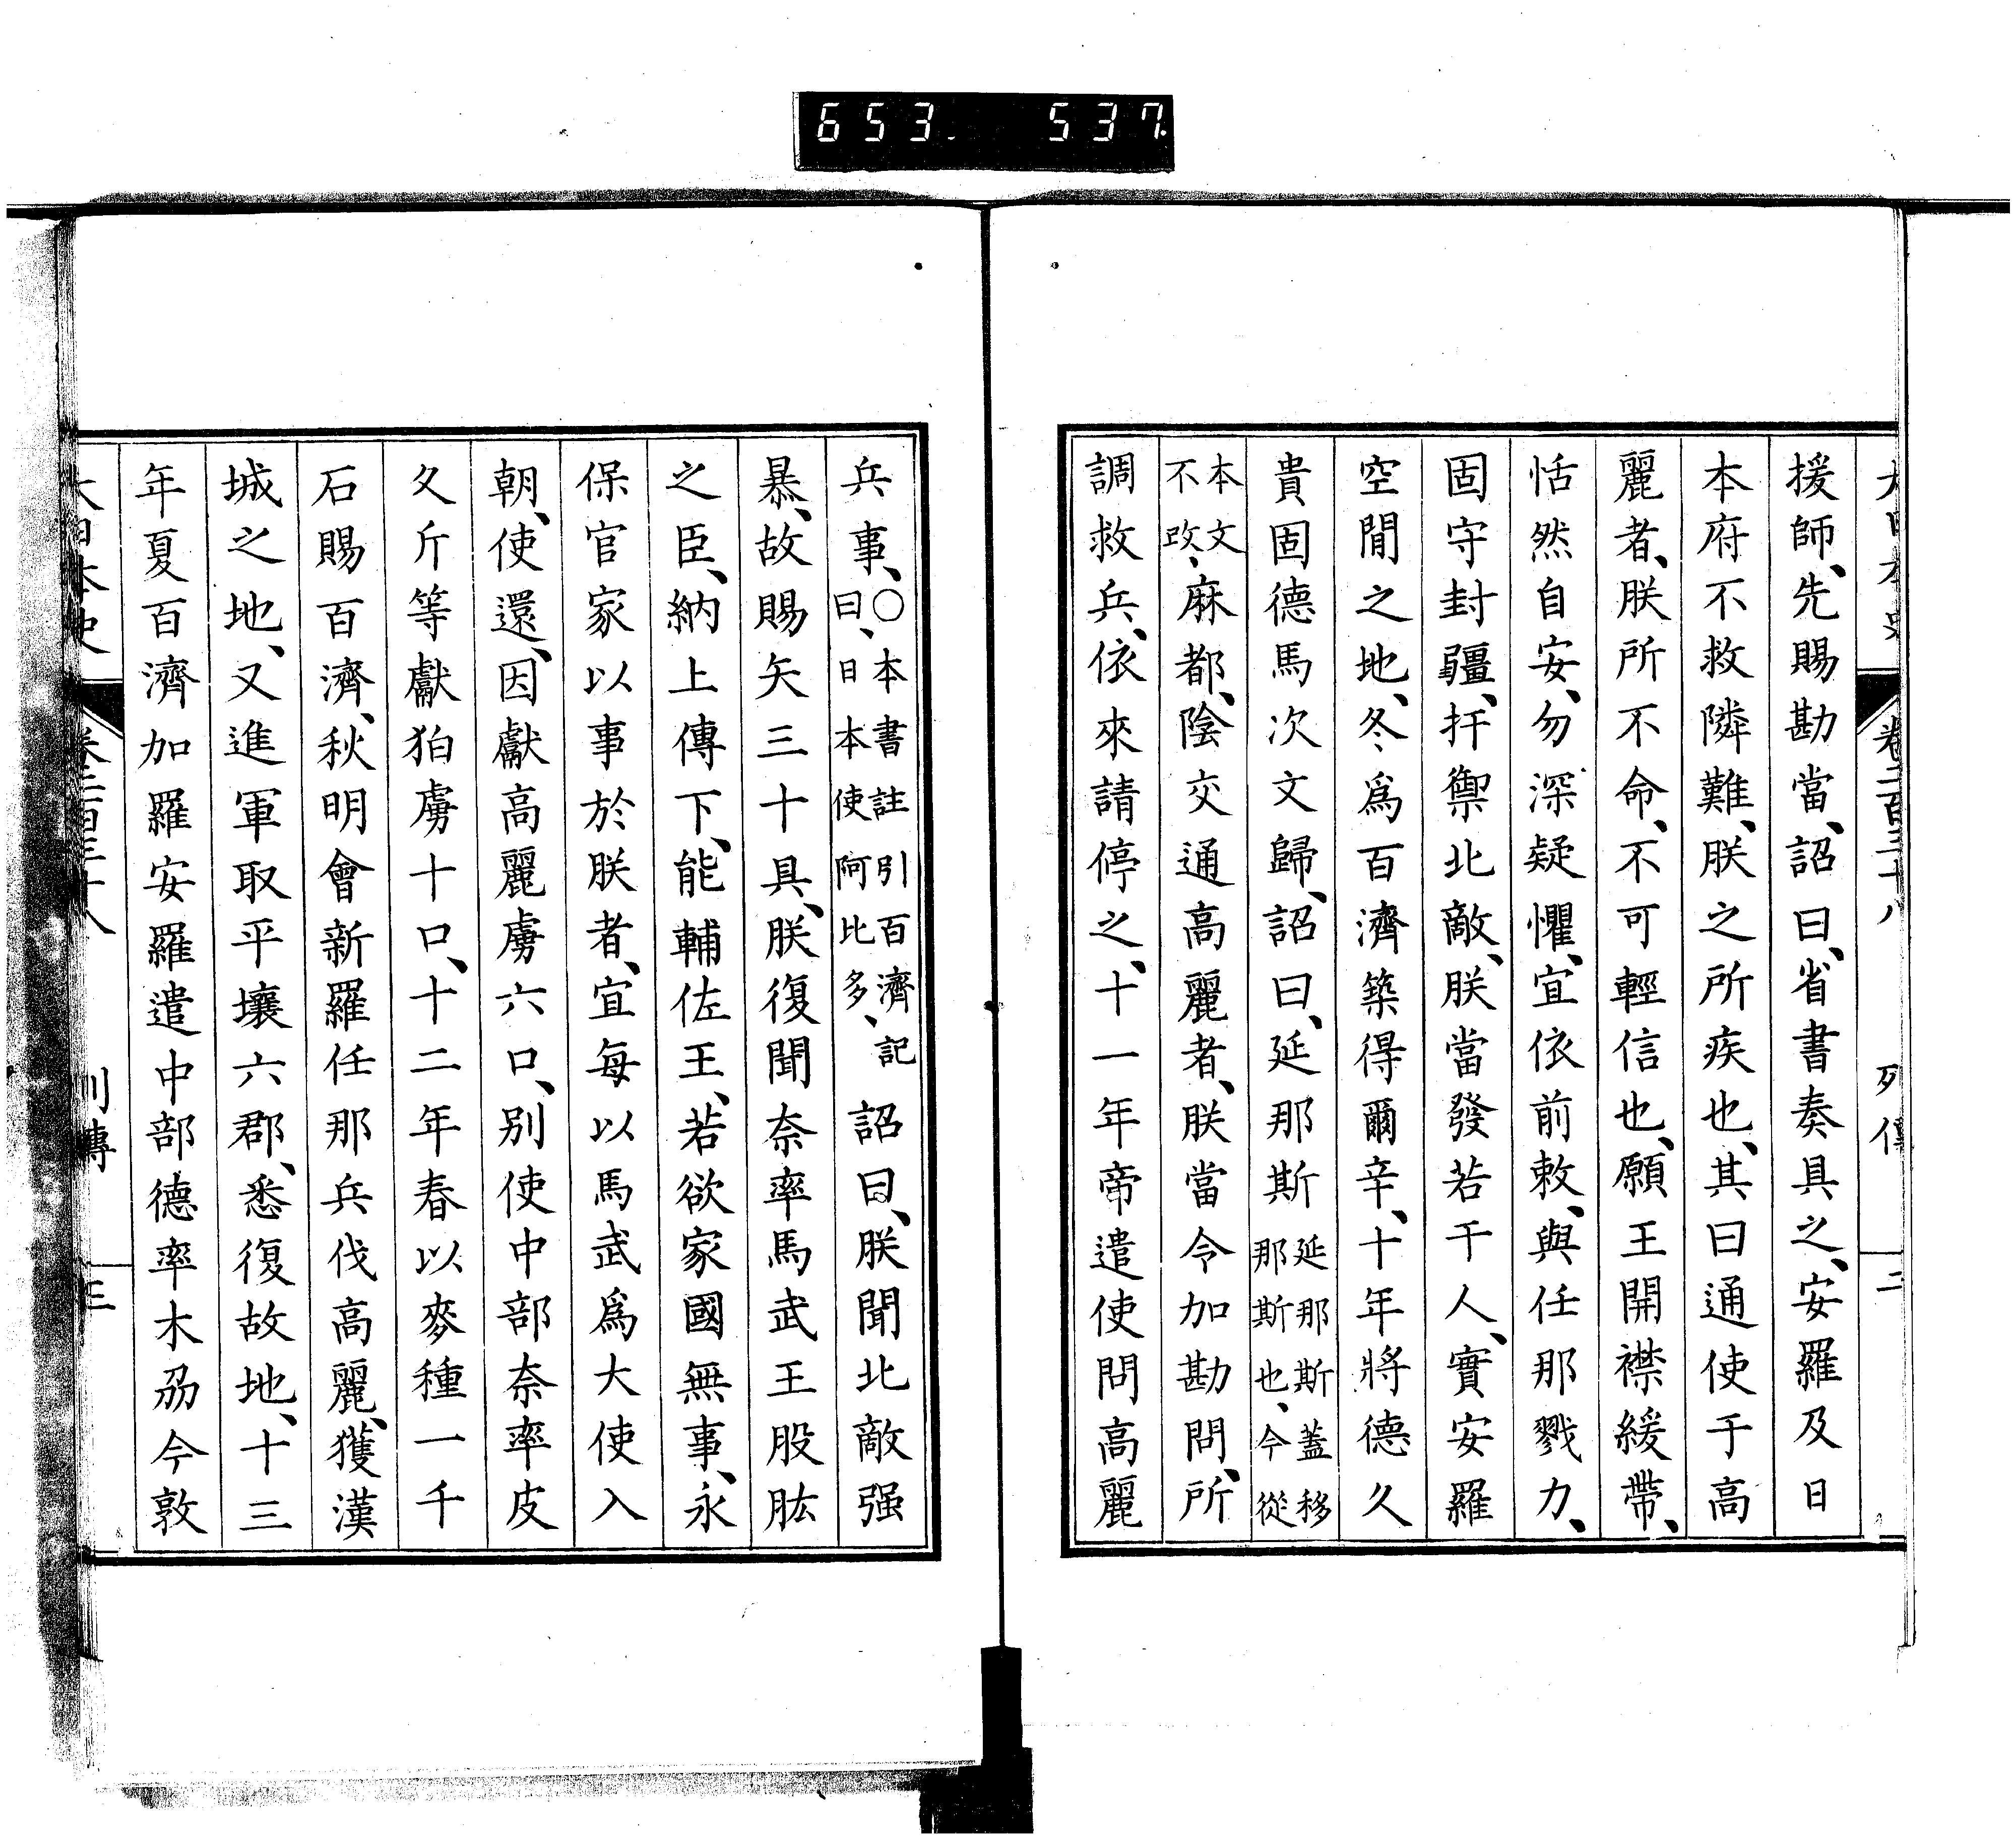 653. 537.
大日本史 卷二百三十八 列傳 二
援師、先賜勘當、詔曰、省書奏具之、安羅及日
本府不救隣難、朕之所疾也、其曰通使于高
麗者、朕所不命、不可輕信也、願王開襟緩帶、
恬然自安、勿深疑懼、宜依前敕、與任那戮力、
固守封疆、扞禦北敵、朕當發若干人、實安羅
空閒之地、冬、爲百濟築得爾辛、十年將德久
貴固德馬次文歸、詔曰、延那斯延那斯蓋移那斯也、今從
本文不改、麻都、陰交通高麗者、朕當令加勘問、所
調救兵、依來請停之、十一年帝遣使問高麗
兵事、〇本書註引百濟記曰、日本使阿比多、詔曰、朕聞北敵强
暴、故賜矢三十具、朕復聞奈率馬武王股肱
之臣、納上傳下、能輔佐王、若欲家國無事、永
保官家以事於朕者、宜每以馬武爲大使入
朝、使還、因獻高麗虜六口、別使中部奈率皮
久斤等獻狛虜十口、十二年春以麥種一千
石賜百濟、秋明會新羅任那兵伐高麗、獲漢
城之地、又進軍取平壤六郡、悉復故地、十三
年夏百濟加羅安羅遣中部德率木刕今敦
大日本史 卷二百三十八 列傳 三